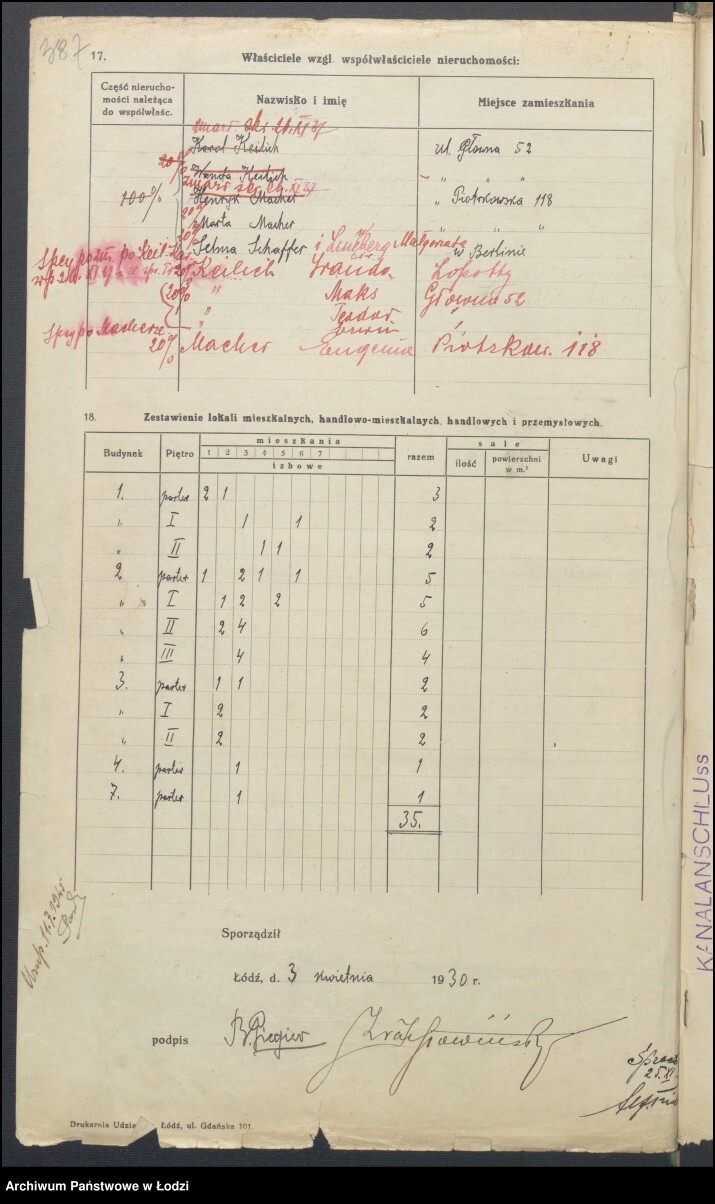 387
17. Właściciele wzgl. współwłaściciele nieruchomości:
Część nierucho-
mości należąca
do współwłaśc.
Nazwisko i imię
Miejsce zamieszkania
zmarł
Karol Keilich ul. Główna 52
20%
Wanda Keilich " " "
zmarł
100% Henryk Macher " Piotrkowska 118
20%
Marta Macher " " "
20%
Selma Schaffer i Lineberg Małgorzata w Berlinie
20% Keilich Wanda Zopotty
20% " Maks Główna 52
" Teodor "
Spy po Macherze
20% Macher Eugenia Piotrkow. 118
18. Zestawienie lokali mieszkalnych, handlowo-mieszkalnych, handlowych i przemysłowych.
Budynek Piętro mieszkania razem sale Uwagi
1 2 3 4 5 6 7
izbowe
ilość powierzchni
w m.²
1. parter 2 1 3
" I 1 1 2
" II 1 1 2
2 parter 1 2 1 1 5
" I 1 2 2 5
" II 2 4 6
" III 4 4
3. parter 1 1 2
" I 2 2
" II 2 2
4. parter 1 1
7. parter 1 1
35.
Sporządził
Łódź, d. 3 kwietnia 1930 r.
podpis
Drukarnia Udzia Łódź, ul. Gdańska 101.
KANALANSCHLUss
Archiwum Państwowe w Łodzi